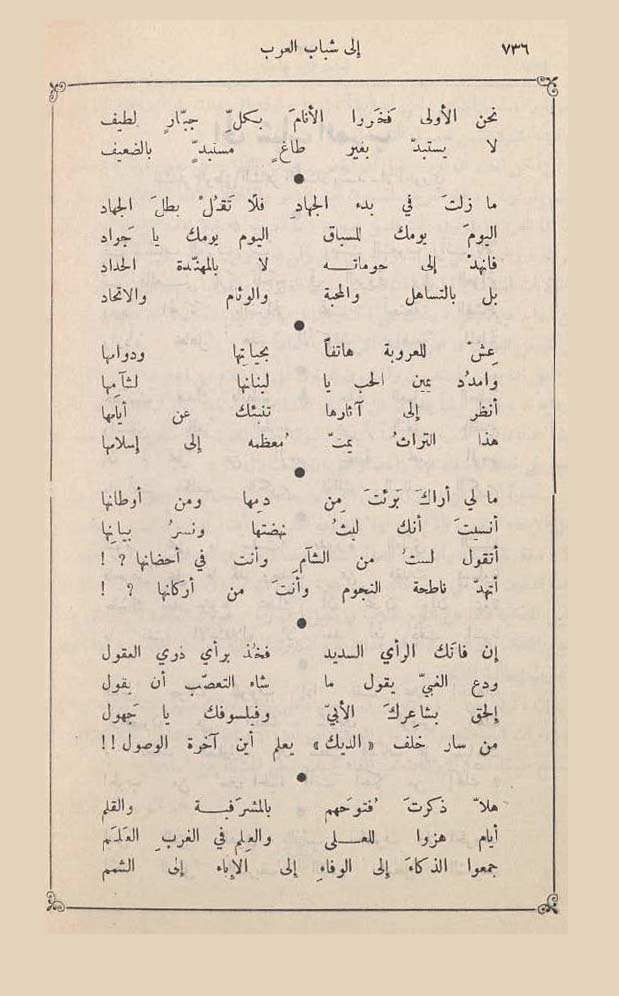 ٧٣٦ إلى شباب العرب
نحن الأولى فَخَروا الأنامَ بكلّ جبّارٍ لطيف
لا يستبدّ بغير طاغٍ مستبدّ بالضعيف
ما زلتَ في بدء الجهادِ فلا تَقُلْ بطلَ الجهاد
اليومَ يومك للسباق اليوم يومك يا جَواد
فانهدْ إلى حوماته لا بالمهنّدة الحداد
بل بالتساهل والمحبة والوئام والاتحاد
عِشْ للعروبة هاتفاً بحياتِها ودوامها
وامدُد يمين الحب يا لبنانها لشآمِها
أنظر إلى آثارها تنبئك عن أيامها
هذا التراثُ يمتّ مُعظمه إلى إسلامها
ما لي أراكَ بَرئتَ مِن دمِها ومن أوطانها
أنسيتَ أنك ليثُ نهضتها ونسرُ بيانِها
أتقول لستُ من الشآمِ وأنت في أحضانها ؟ !
أتهدّ ناطحة النجوم وأنتَ من أركانها ؟ !
إن فاتكَ الرأي السديد فخُذ برأي ذوي العقول
ودع الغبيّ يقول ما شاء التعصّب أن يقول
إلحق بشاعِركَ الأبيّ وفيلسوفك يا جَهول
من سار خلف «الديك» يعلم أين آخرة الوصول !!
هلاّ ذكرتَ فُتوحَهم بالمشرَفية والقلم
أيام هزوا للعلى والعِلم في الغربِ العَلَم
جمعوا الذكاءَ إلى الوفاءِ إلى الإباء إلى الشمم